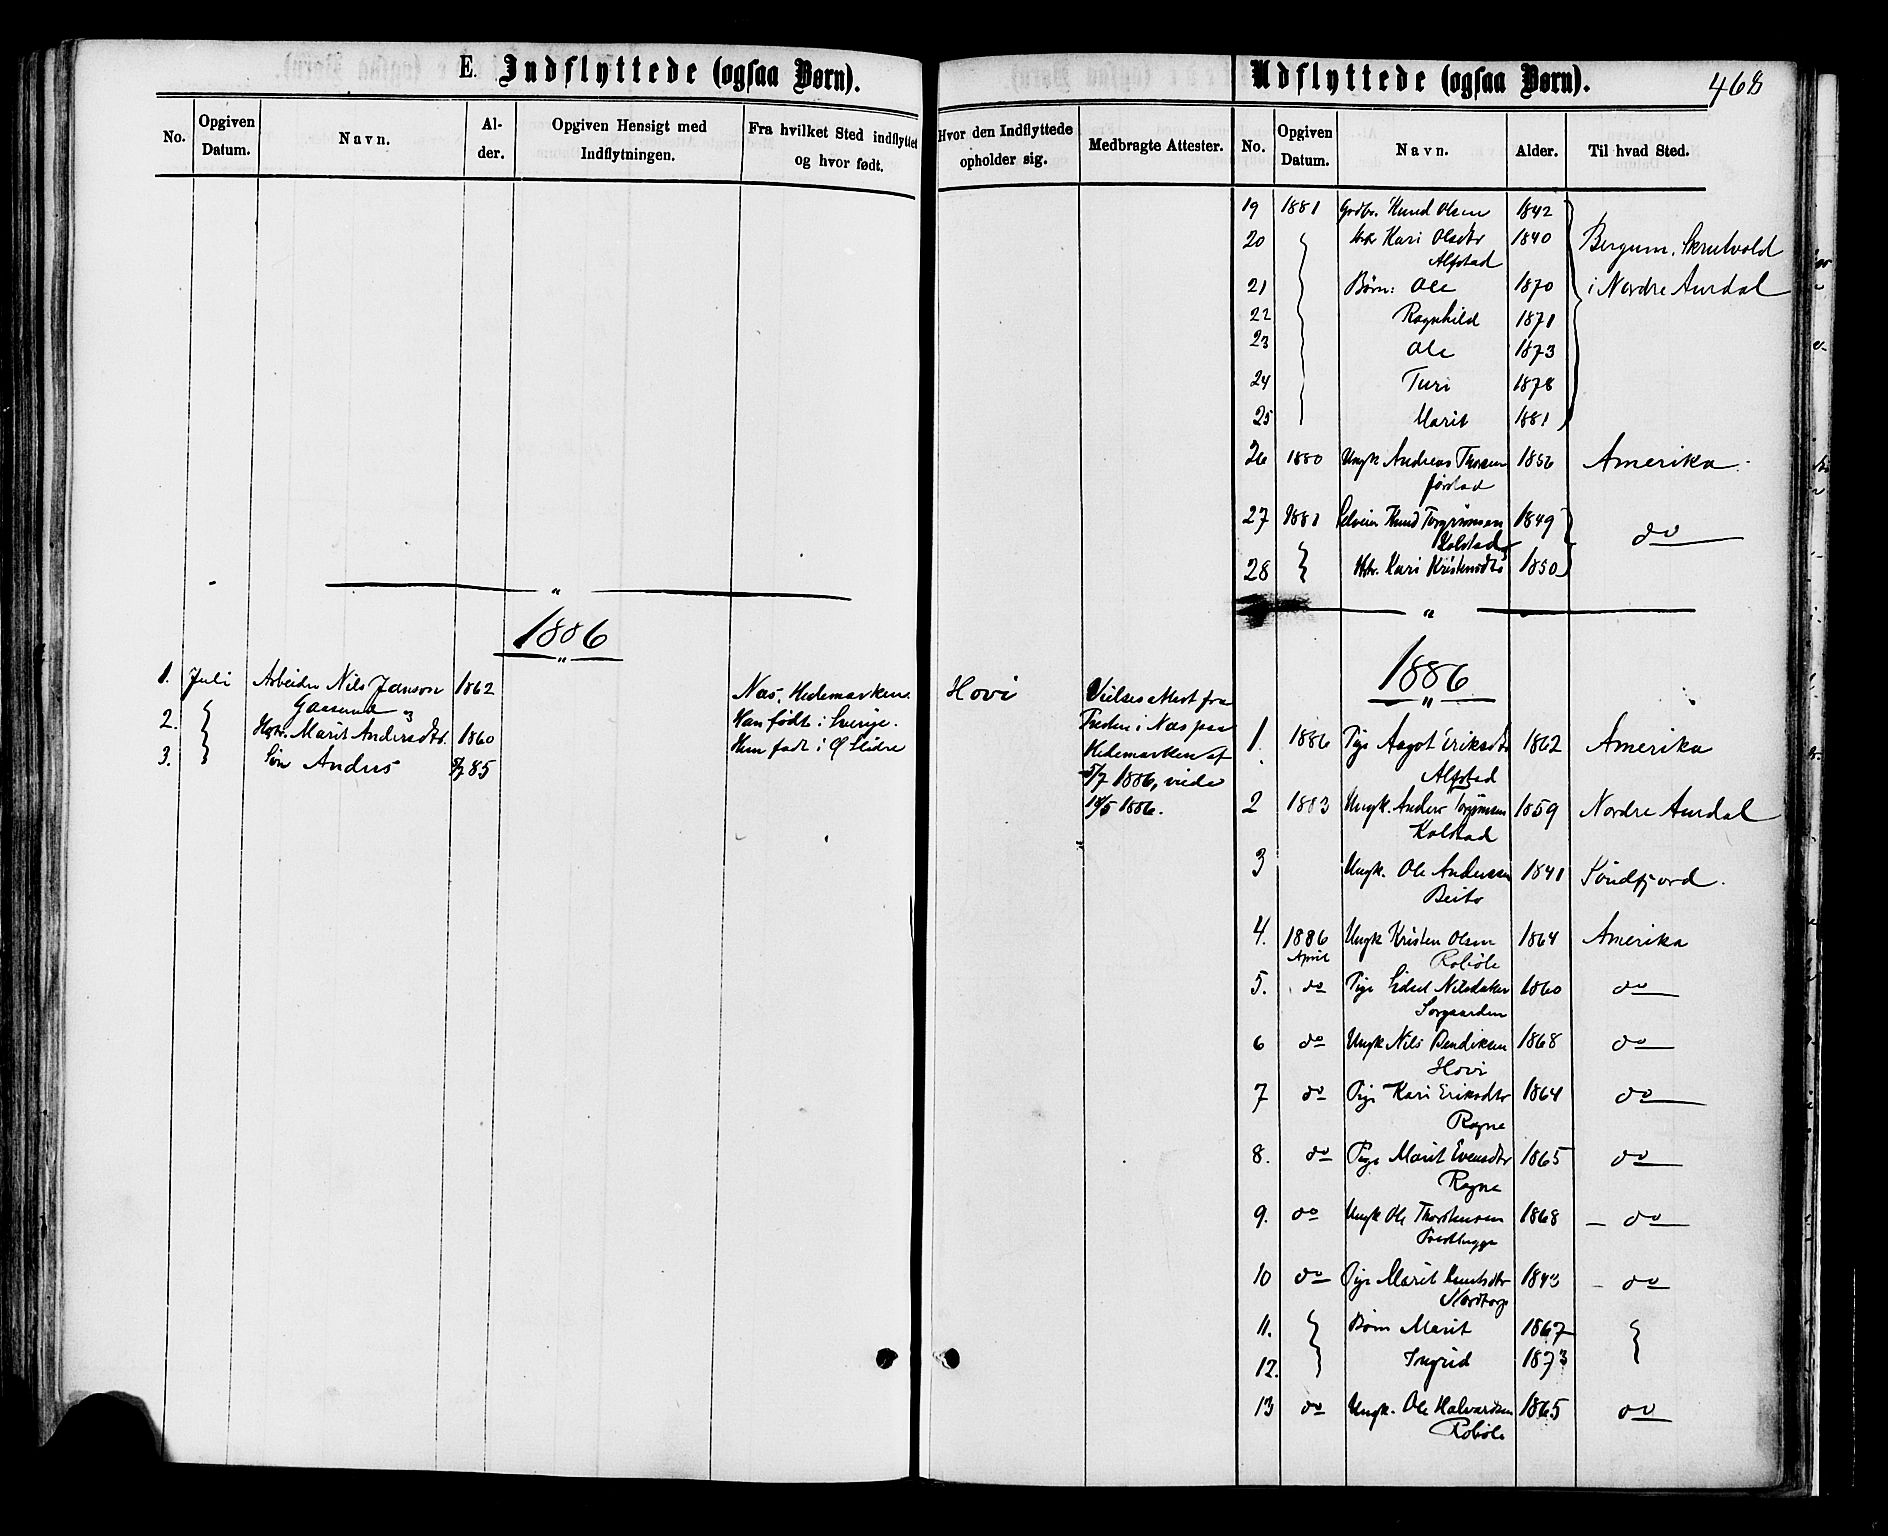 E. Indflyttede (ogsaa Børn).
No.
Opgiven
Datum.
Navn.
Al-
der.
Opgiven Hensigt med
Indflytningen.
Fra hvilket Sted indflyttet
og hvor født.
Hvor den Indflyttede
opholder sig.
Medbragte Attester.
1886
1. Juli Arbeider Nils Janson 1862
Gaasund og
2. Hstr. Marit Andersdtr. 1860
3. Søn Andris 85
Næs, Hedemarken.
Han født i Sverige.
Hun født i Ø Slidre
Hovi
Vielsesattest fra
Præsten i Næs paa
Hedemarken af
5/7 1886, viede
1886.
Udflyttede (ogsaa Børn).
468
No.
Opgiven
Datum.
Navn.
Alder.
Til hvad Sted.
19 1881 Gdbr. Knud Olsen 1842
20 Hstr Kari Olsdtr 1840 Bergum, Skrutvold
Alfstad
21 Børn: Ole 1870 i Nordre Aurdal
22 Ragnhild 1871
23 Ole 1873
24 Turi 1878
25 Marit 1881
26 1880 Ungk Andreas Thorsen 1856 Amerika.
27 1881 Selveier Knud Torgrimsen 1849 do
Kolstad
28 Hstr. Kari Kristensdtr 1850
1886
1. 1886 Pige Aagot Eriksdtr 1862 Amerika
Alfstad
2 1883 Ungk. Anders Torgrimsen 1859 Nordre Aurdal
Kolstad
3 Ungk. Ole Andersen 1841 Søndfjord.
Beito
4. 1886 Ungk Kristen Olsen 1864 Amerika
April Robøle
5. do Pige Sidsel Nilsdatter 1860 do
Sørgaarden
6 do Ungk Nils Bendiksen 1868 do
Hovi
7 do Pige Kari Eriksdtr 1864 do
Rogne
8. do Pige Marit Evensdtr 1865 do
Rogne
9. do Ungk Ole Thorstensen 1868 do
10 do Pige Marit Knutsdtr 1843 do
Nordtorp
11. Børn Marit 1867
12. Ingrid 1873
13 do Ungk. Ole Halvardsen 1865 do
Robøle